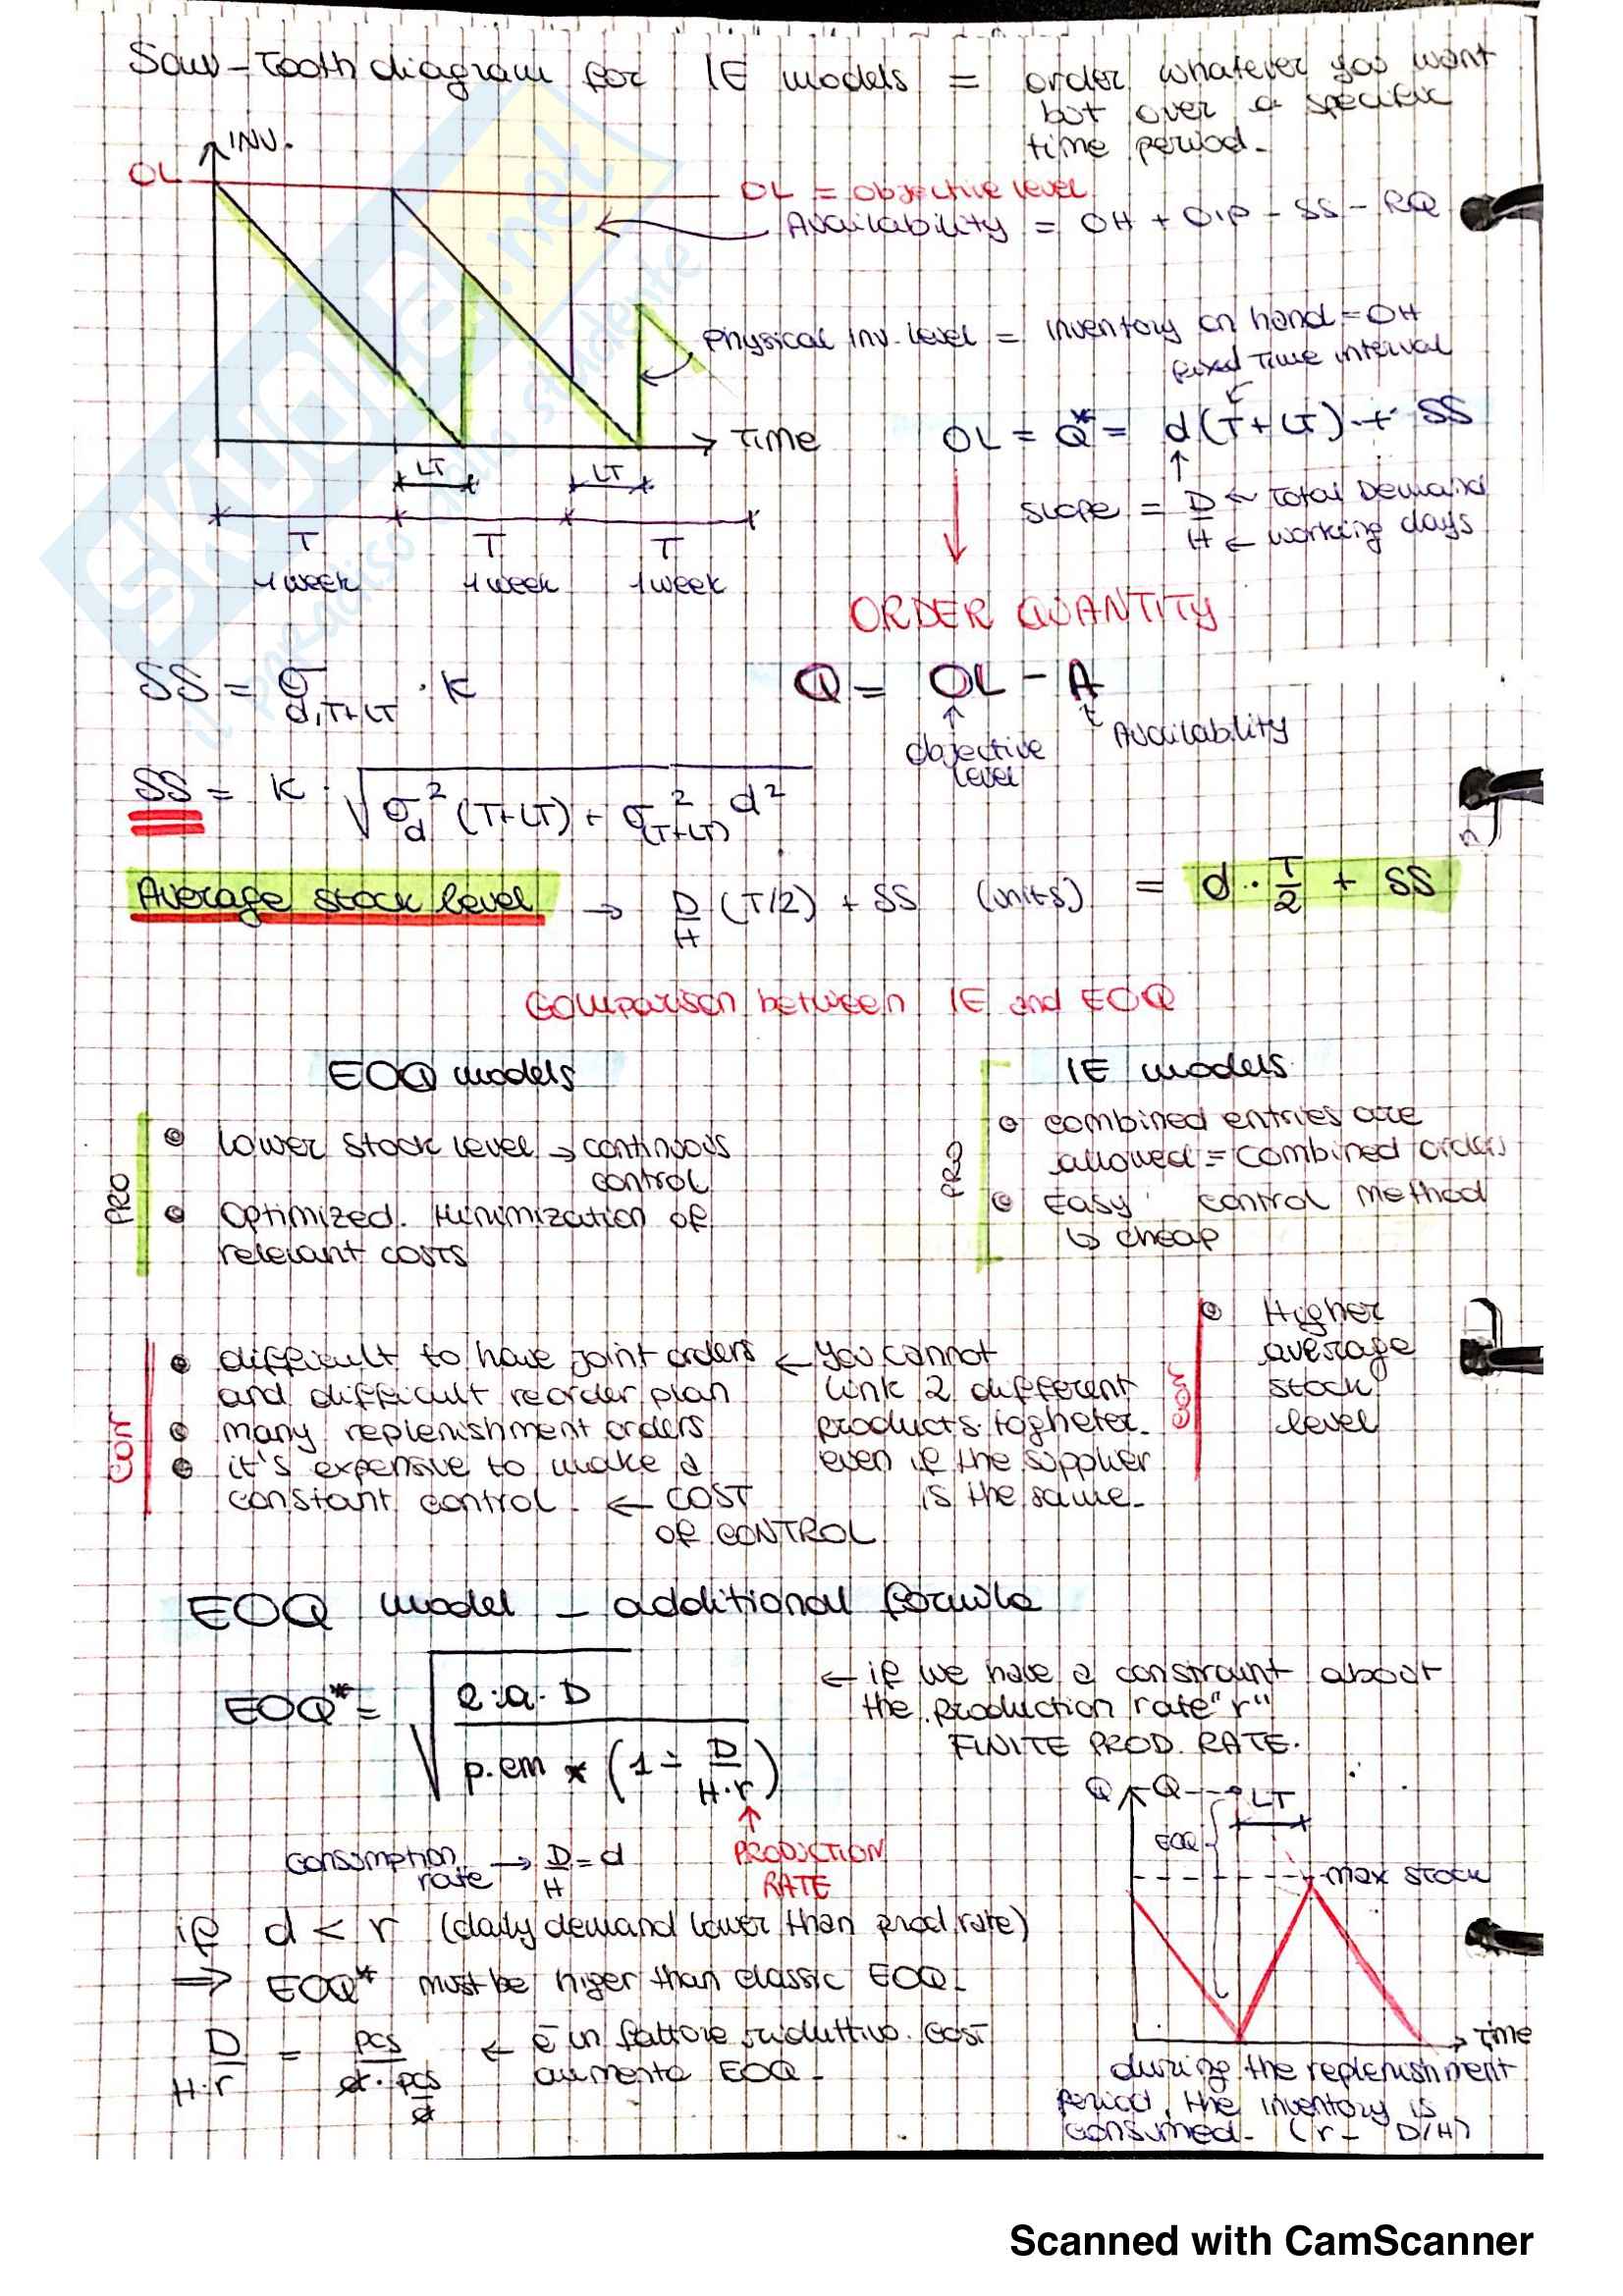 Saw-Tooth diagram for IE models = order whatever you want
but over a specific
time period.
INV.
OL
OL = Objective level
Availability = OH + OIP - SS - RQ
Physical inv. level = inventory on hand = OH
fixed time interval
Time
OL = Q* = d(T+LT) + SS
LT LT
slope = D/H ← Total Demand
← working days
T T T
1 week 1 week 1 week
ORDER QUANTITY
SS = σ d,T+LT · K
Q = OL - A
Objective level
Availability
SS = K · √σd² (T+LT) + σ²(T+LT) d²
Average stock level → D/H (T/2) + SS (units) = d · T/2 + SS
Comparison between IE and EOQ
EOQ models
PRO
lower stock level → continuous
control
Optimized. Minimization of
relevant costs
CON
difficult to have joint orders ← you cannot
and difficult reorder plan link 2 different
many replenishment orders products togheter
it's expensive to make a even if the supplier
constant control. ← COST is the same.
OF CONTROL
IE models
PRO
combined entries are
allowed = combined orders
Easy control method
↳ cheap
CON
Higher
average
stock
level
EOQ model - additional formula
EOQ* = √2·a·D / p·em * (1 - D/H·r)
← if we have a constraint about
the production rate "r"
FINITE PROD. RATE.
consumption rate → D/H = d
PRODUCTION
RATE
Q Q LT
EOQ
max stock
Time
if d < r (daily demand lower than prod. rate)
⇒ EOQ* must be higer than classic EOQ.
D/H·r = pcs/d·pcs/d ← è un fattore riduttivo. Così
aumenta EOQ.
during the replenishment
period, the inventory is
consumed. (r - D/H)
Scanned with CamScanner
SKUOLA.net
il paradiso dello studente